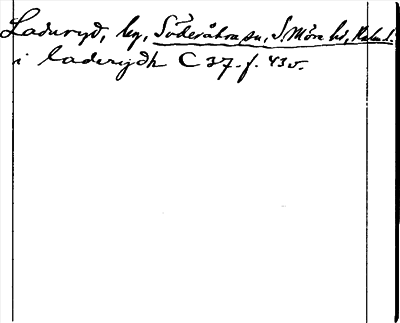 Laduryd, by, Söderåkra sn, S. Möre hd, Kalm. l.
i laderydh C 37. f. 43 v.